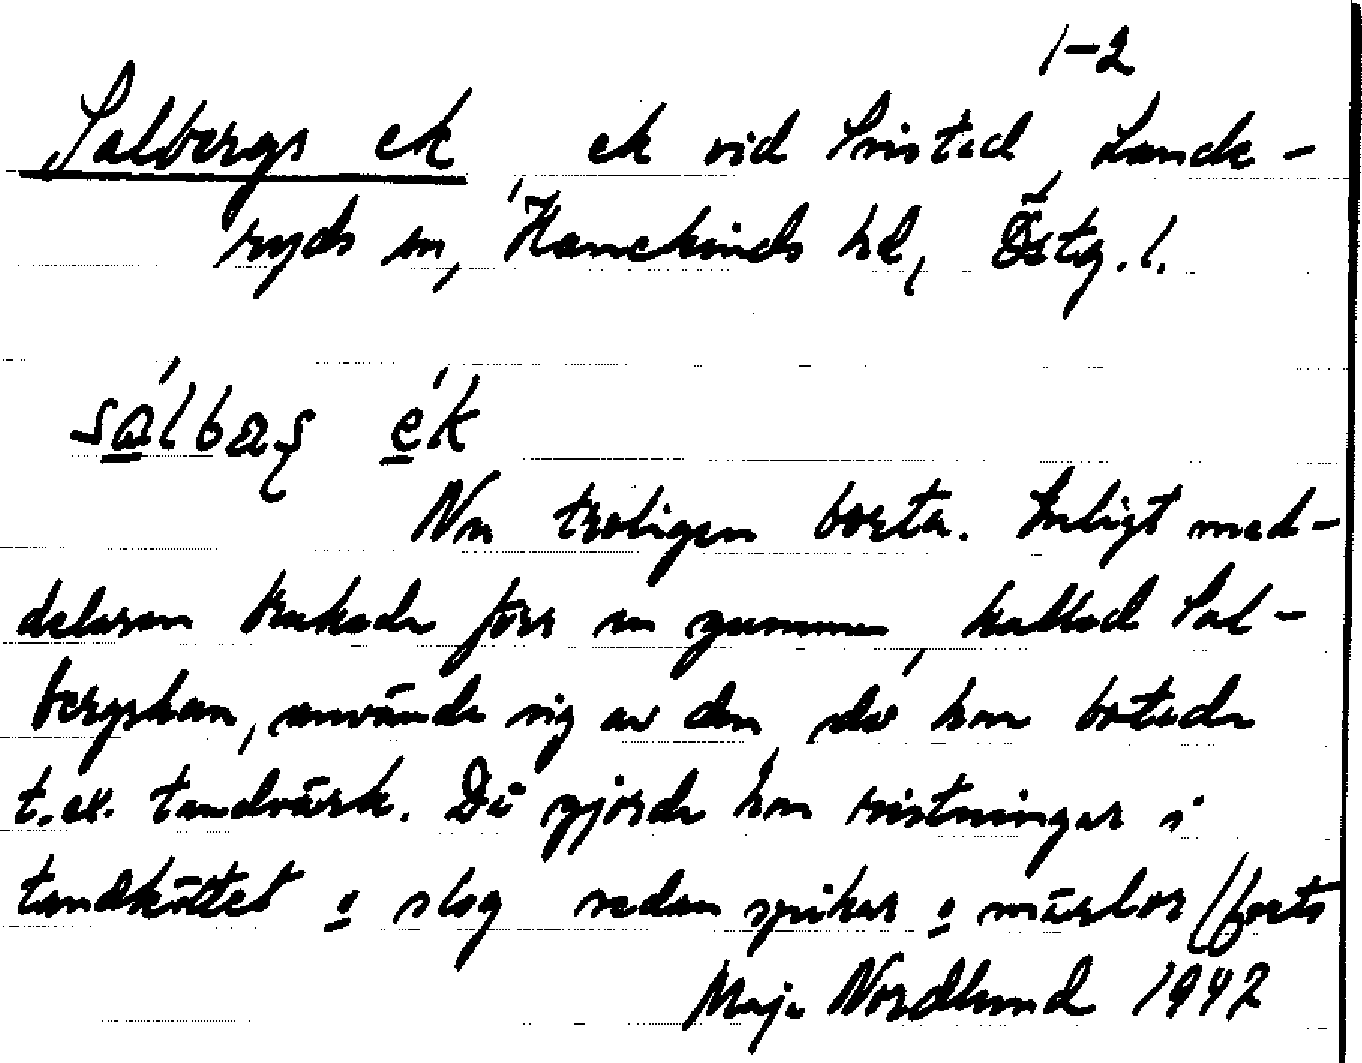 1-2
Salbergs ek ek vid Smistad, Lande-
ryds sn, Hanekinds hd, Östg. l.
sálbaș ék
Nu troligen borta. Enligt med-
delaren brukade förr en gumma, kallad Sal-
bergskan, använda sig av den, då hon botade
t.ex. tandvärk. Då gjorde hon ristningar i
tandköttet o slog sedan spikar o märlor (forts
Maja Nordlund 1942